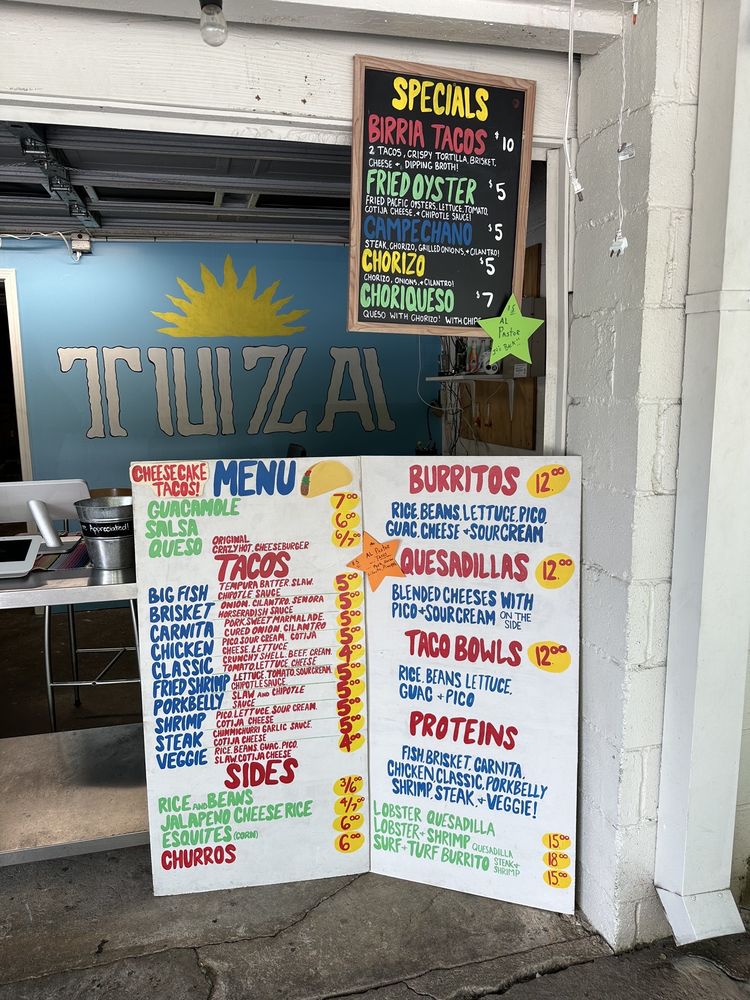 SPECIALS
BIRRIA TACOS $10
2 TACOS, CRISPY TORTILLA, BRISKET,
CHEESE +, DIPPING BROTH!
FRIED OYSTER $5
FRIED PACFIC OYSTERS, LETTUCE, TOMATO,
COTIJA CHEESE, + CHIPOTLE SAUCE!
CAMPECHANO $5
STEAK, CHORIZO, GRILLED ONIONS, + CILANTRO!
CHORIZO $5
CHORIZO, ONIONS, + CILANTRO!
CHORIQUESO $7
QUESO WITH CHORIZO! WITH CHIPS
$5
AL
Pastor
BACK"
TUZA
Appreciated!
CHEESECAKE
TACOS!
MENU
GUACAMOLE 7.00
SALSA 6.00
QUESO ORIGINAL 6/7.00
CRAZY HOT, CHEESEBURGER
TACOS
BIG FISH TEMPURA BATTER, SLAW,
CHIPOTLE SAUCE
BRISKET ONION, CILANTRO, SENORA
HORSERADISH SAUCE
CARNITA PORK, SWEET MARMALADE
CURED ONION, CILANTRO
CHICKEN PICO, SOUR CREAM, COTIJA
CHEESE, LETTUCE
CLASSIC CRUNCHY SHELL, BEEF, CREAM,
TOMATO, LETTUCE CHEESE
FRIED SHRIMP LETTUCE, TOMATO, SOUR CREAM
CHIPOTLE SAUCE
PORKBELLY SLAW AND CHIPOTLE
SAUCE
SHRIMP PICO, LETTUCE, SOUR CREAM,
COTIJA CHEESE
STEAK CHIMMICHURRI GARLIC SAUCE,
COTIJA CHEESE
VEGGIE RICE, BEANS, GUAC, PICO,
SLAW, COTIJA CHEESE
SIDES
RICE AND BEANS 3/6.00
JALAPENO CHEESE RICE 4/7.00
ESQUITES (CORN) 6.00
CHURROS 6.00
$5 AL Pastor
BURRITOS 12.00
RICE, BEANS, LETTUCE, PICO,
GUAC, CHEESE + SOUR CREAM
QUESADILLAS 12.00
BLENDED CHEESES WITH
PICO + SOUR CREAM ON THE
SIDE
TACO BOWLS 12.00
RICE, BEANS LETTUCE,
GUAC + PICO
PROTEINS
FISH, BRISKET, CARNITA,
CHICKEN, CLASSIC, PORKBELLY
SHRIMP, STEAK, + VEGGIE!
LOBSTER QUESADILLA 15.00
LOBSTER + SHRIMP QUESADILLA 18.00
SURF + TURF BURRITO STEAK + 15.00
SHRIMP